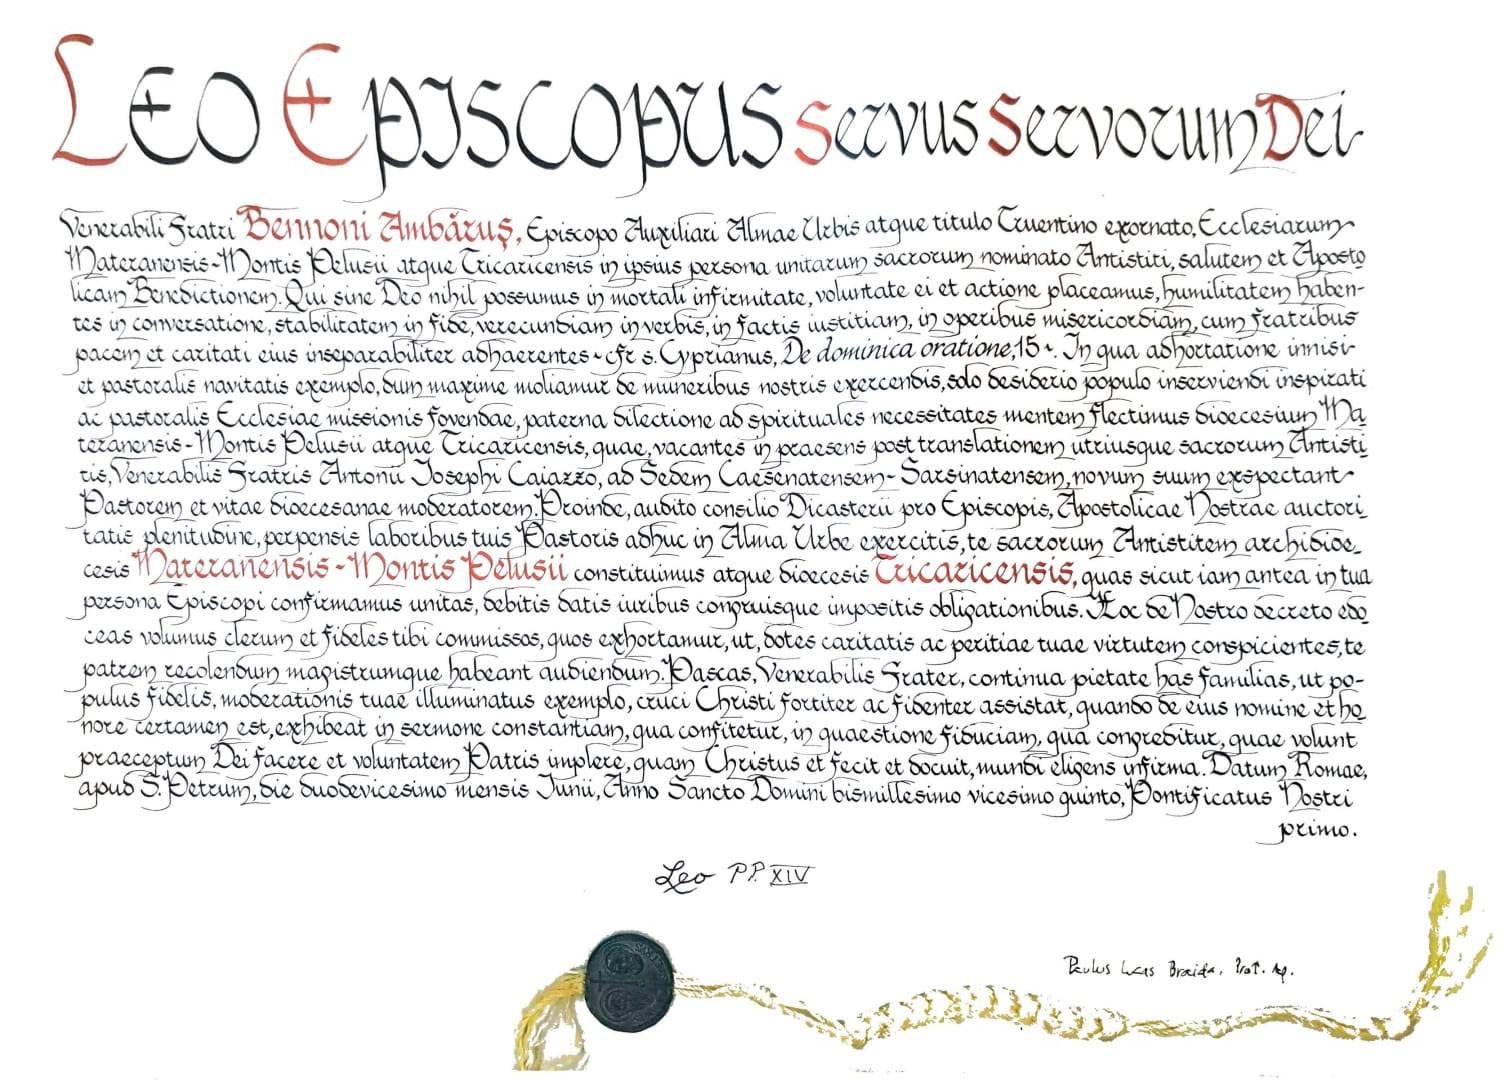 Leo Episcopus Servus Servorum Dei
Venerabili Fratri Bennoni Ambăruş, Episcopo Auxiliari Almae Urbis atque titulo Truentino exornato, Ecclesiarum
Materanensis-Montis Pelusii atque Tricaricensis in ipsius persona unitarum sacrorum nominato Antistiti, salutem et Aposto
licam Benedictionem. Qui sine Deo nihil possumus in mortali infirmitate, voluntate ei et actione placeamus, humilitatem haben-
tes in conversatione, stabilitatem in fide, verecundiam in verbis, in factis iustitiam, in operibus misericordiam, cum fratribus
pacem et caritati eius inseparabiliter adhaerentes ~ cfr s. Cyprianus, De dominica oratione, 15 ~. In qua adhortatione innisi
et pastoralis navitatis exemplo, dum maxime moliamur de muneribus nostris exercendis, solo desiderio populo inserviendi inspirati
ac pastoralis Ecclesiae missionis fovendae, paterna dilectione ad spirituales necessitates mentem flectimus dioecesium Ma
teranensis-Montis Pelusii atque Tricaricensis, quae, vacantes in praesens post translationem utriusque sacrorum Antisti
tis, Venerabilis Fratris Antonii Iosephi Caiazzo, ad Sedem Caesenatensem-Sarsinatensem, novum suum exspectant
Pastorem et vitae dioecesanae moderatorem. Proinde, audito consilio Dicasterii pro Episcopis, Apostolicae Nostrae auctori
tatis plenitudine, perpensis laboribus tuis Pastoris adhuc in Alma Urbe exercitis, te sacrorum Antistitem archidioe
cesis Materanensis-Montis Pelusii constituimus atque dioecesis Tricaricensis, quas sicut iam antea in tua
persona Episcopi confirmamus unitas, debitis datis iuribus congruisque impositis obligationibus. Hoc de Nostro decreto edo
ceas volumus clerum et fideles tibi commissos, quos exhortamur, ut, dotes caritatis ac peritiae tuae virtutem conspicientes, te
patrem recolendum magistrumque habeant audiendum. Pascas, Venerabilis Frater, continua pietate has familias, ut po-
pulus fidelis, moderationis tuae illuminatus exemplo, cruci Christi fortiter ac fidenter assistat, quando de eius nomine et ho
nore certamen est, exhibeat in sermone constantiam, qua confitetur, in quaestione fiduciam, qua congreditur, quae volunt
praeceptum Dei facere et voluntatem Patris implere, quam Christus et fecit et docuit, mundi eligens infirma. Datum Romae,
apud S. Petrum, die duodevicesimo mensis Iunii, Anno Sancto Domini bismillesimo vicesimo quinto, Pontificatus Nostri
primo.
Leo PP. XIV
Paulus Lucas Braida, Prot. Ap.